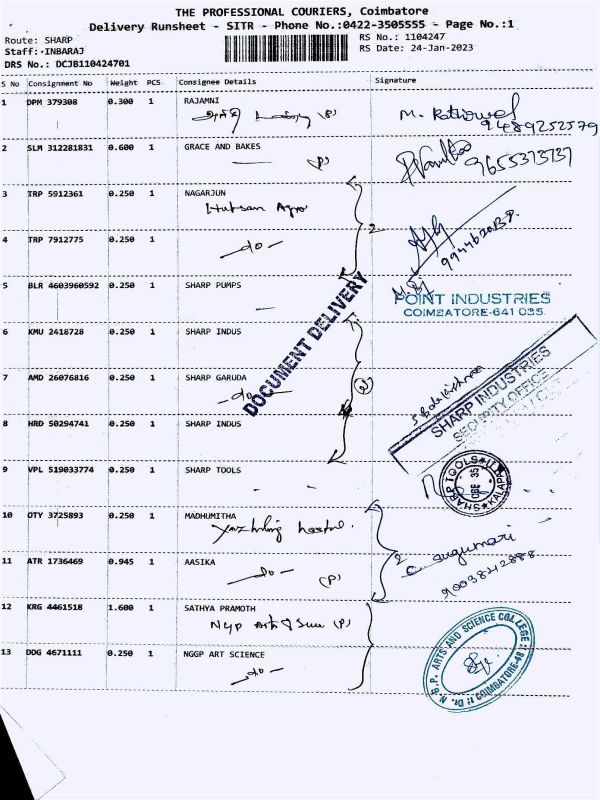 THE PROFESSIONAL COURIERS, Coimbatore
Delivery Runsheet - SITR - Phone No.:0422-3505555 - Page No.:1
Route: SHARP RS No.: 1104247
Staff: INBARAJ RS Date: 24-Jan-2023
DRS No.: DCJB110424701
S No Consignment No Weight PCS Consignee Details Signature
1 DPM 379308 0.300 1 RAJAMNI
(P) M.
9489252579
2 SLM 312281831 0.600 1 GRACE AND BAKES
(P) 9655373737
3 TRP 5912361 0.250 1 NAGARJUN
Hutsan Agro
2
4 TRP 7912775 0.250 1
-do-
5 BLR 4603960592 0.250 1 SHARP PUMPS
POINT INDUSTRIES
COIMBATORE-641 035.
DOCUMENT DELIVERY
6 KMU 2418728 0.250 1 SHARP INDUS
7 AMD 26076816 0.250 1 SHARP GARUDA
-do- (2)
SHARP INDUSTRIES
SECURITY OFFICE
8 HRD 50294741 0.250 1 SHARP INDUS
9 VPL 519033774 0.250 1 SHARP TOOLS
SHARP TOOLS
CBE 35
10 OTY 3725893 0.250 1 MADHUMITHA
2
11 ATR 1736469 0.945 1 AASIKA
-do- (P)
12 KRG 4461518 1.600 1 SATHYA PRAMOTH
(P)
N.G.P. ARTS AND SCIENCE COLLEGE
COIMBATORE-48
13 DDG 4671111 0.250 1 NGGP ART SCIENCE
-do-